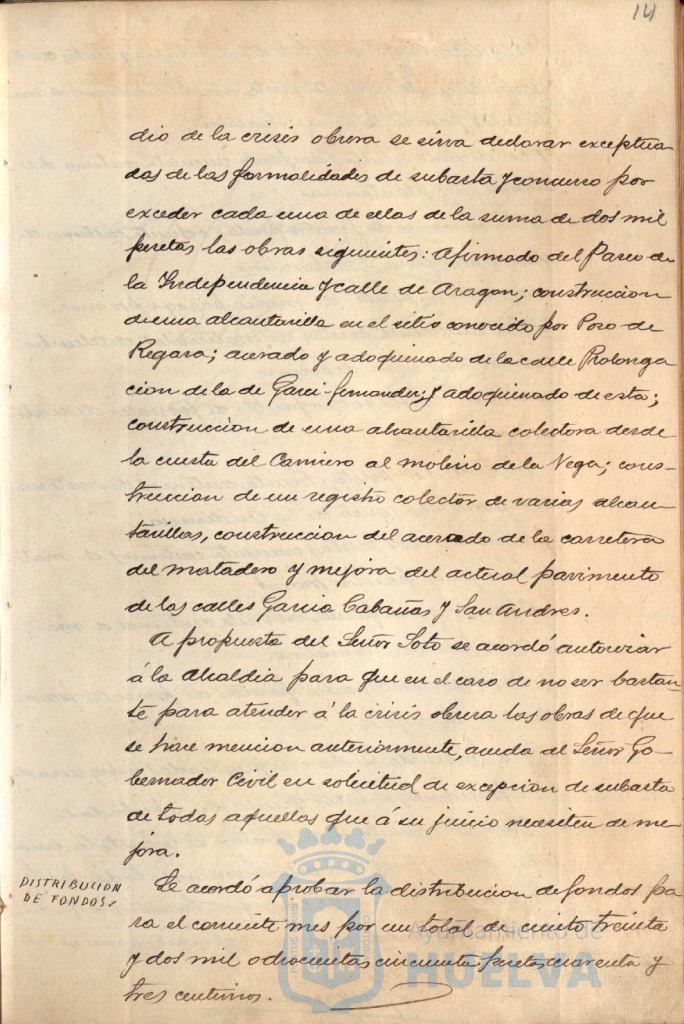 14
dio de la crisis obrera se sirva declarar exceptua
das de las formalidades de subasta y concurso por
exceder cada una de ellas de la suma de dos mil
pesetas las obras siguientes: afirmado del Paseo de
la Independencia y calle de Aragon; construccion
de una alcantarilla en el sitio conocido por Poso de
Regara; acerado y adoquinado de la calle Prolonga
cion de la de Garci-fernandez y adoquinado de esta;
construccion de una alcantarilla colectora desde
la cuesta del Carnicero al molino de la Vega; cons-
truccion de un registro colector de varias alcan
tarillas, construccion del acerado de la carretera
del matadero y mejora del actual pavimento
de las calles Garcia Cabañas y San Andres.
A propuesta del Señor Soto se acordó autorizar
á la Alcaldia para que en el caso de no ser bastan-
te para atender á la crisis obrera las obras de que
se hace mencion anteriormente, acuda al Señor Go-
bernador Civil en solicitud de excepcion de subasta
de todas aquellas que á su juicio necesiten de me-
jora.
DISTRIBUCION
DE FONDOS
Se acordó aprobar la distribucion de fondos pa
ra el corriente mes por un total de ciento treinta
y dos mil ochocientas cincuenta pesetas cuarenta y
tres centimos.
Ayuntamiento de
HUELVA